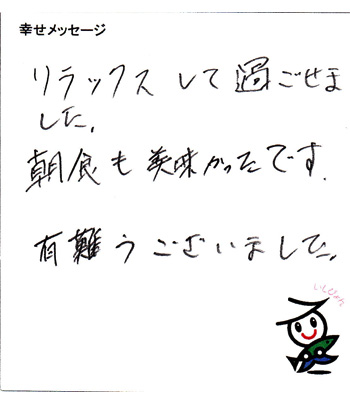 幸せメッセージ
リラックスして過ごせま
した。
朝食も美味かったです.
有難うございました。